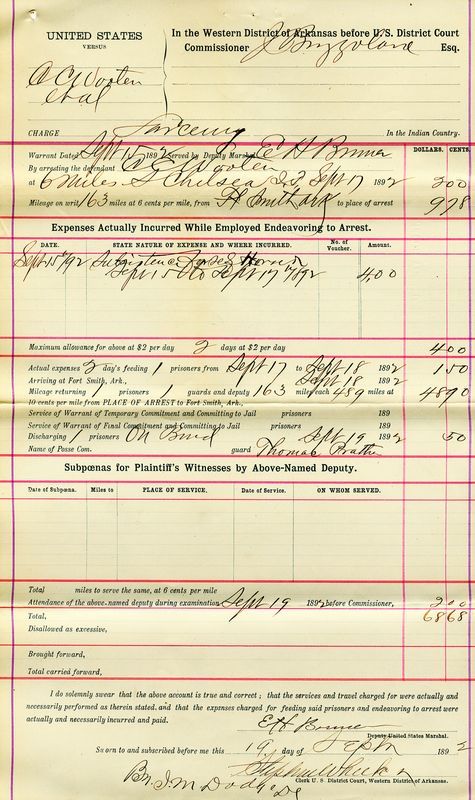 UNITED STATES
VERSUS
C C Wooten
et al
In the Western District of Arkansas before U. S. District Court
Commissioner Esq.
CHARGE Larceny In the Indian Country.
DOLLARS. CENTS.
Warrant Dated Sept 15 1892 Served by Deputy Marshal E H Bruner
By arresting the defendant C C Wooten
at 6 miles S Chelsea I.T. Sept 17 1892 2 00
Mileage on writ 163 miles at 6 cents per mile, from Ft Smith Ark to place of arrest 9 78
Expenses Actually Incurred While Employed Endeavoring to Arrest.
DATE. STATE NATURE OF EXPENSE AND WHERE INCURRED. No. of Voucher. Amount.
Sept 15 /92 Subsistence Self & Horse
Sept 15 to Sept 17 /92 4,00
Maximum allowance for above at $2 per day 2 days at $2 per day 4 00
Actual expenses 2 day's feeding 1 prisoners from Sept 17 to Sept 18 1892 1 50
Arriving at Fort Smith, Ark., Sept 18 1892
Mileage returning 1 prisoners 1 guards and deputy 163 miles each 489 miles at 48 90
10 cents per mile from PLACE OF ARREST to Fort Smith, Ark.,
Service of Warrant of Temporary Commitment and Committing to Jail prisoners 189
Service of Warrant of Final Commitment and Committing to Jail prisoners 189
Discharging 1 prisoners On Bond Sept 19 1892 50
Name of Posse Com. guard Thomas Prather
Subpœnas for Plaintiff's Witnesses by Above-Named Deputy.
Date of Subpœna. Miles to PLACE OF SERVICE. Date of Service. ON WHOM SERVED.
Total miles to serve the same, at 6 cents per mile
Attendance of the above-named deputy during examination Sept 19 1892 before Commissioner, 2 00
Total, 68 68
Disallowed as excessive,
Brought forward,
Total carried forward,
I do solemnly swear that the above account is true and correct; that the services and travel charged for were actually and
necessarily performed as therein stated, and that the expenses charged for feeding said prisoners and endeavoring to arrest were
actually and necessarily incurred and paid.
E H Bruner
Deputy United States Marshal.
Sworn to and subscribed before me this 19 day of Sept 1892
Stephen Wheeler
Clerk U. S. District Court, Western District of Arkansas.
By J M Dodge DC